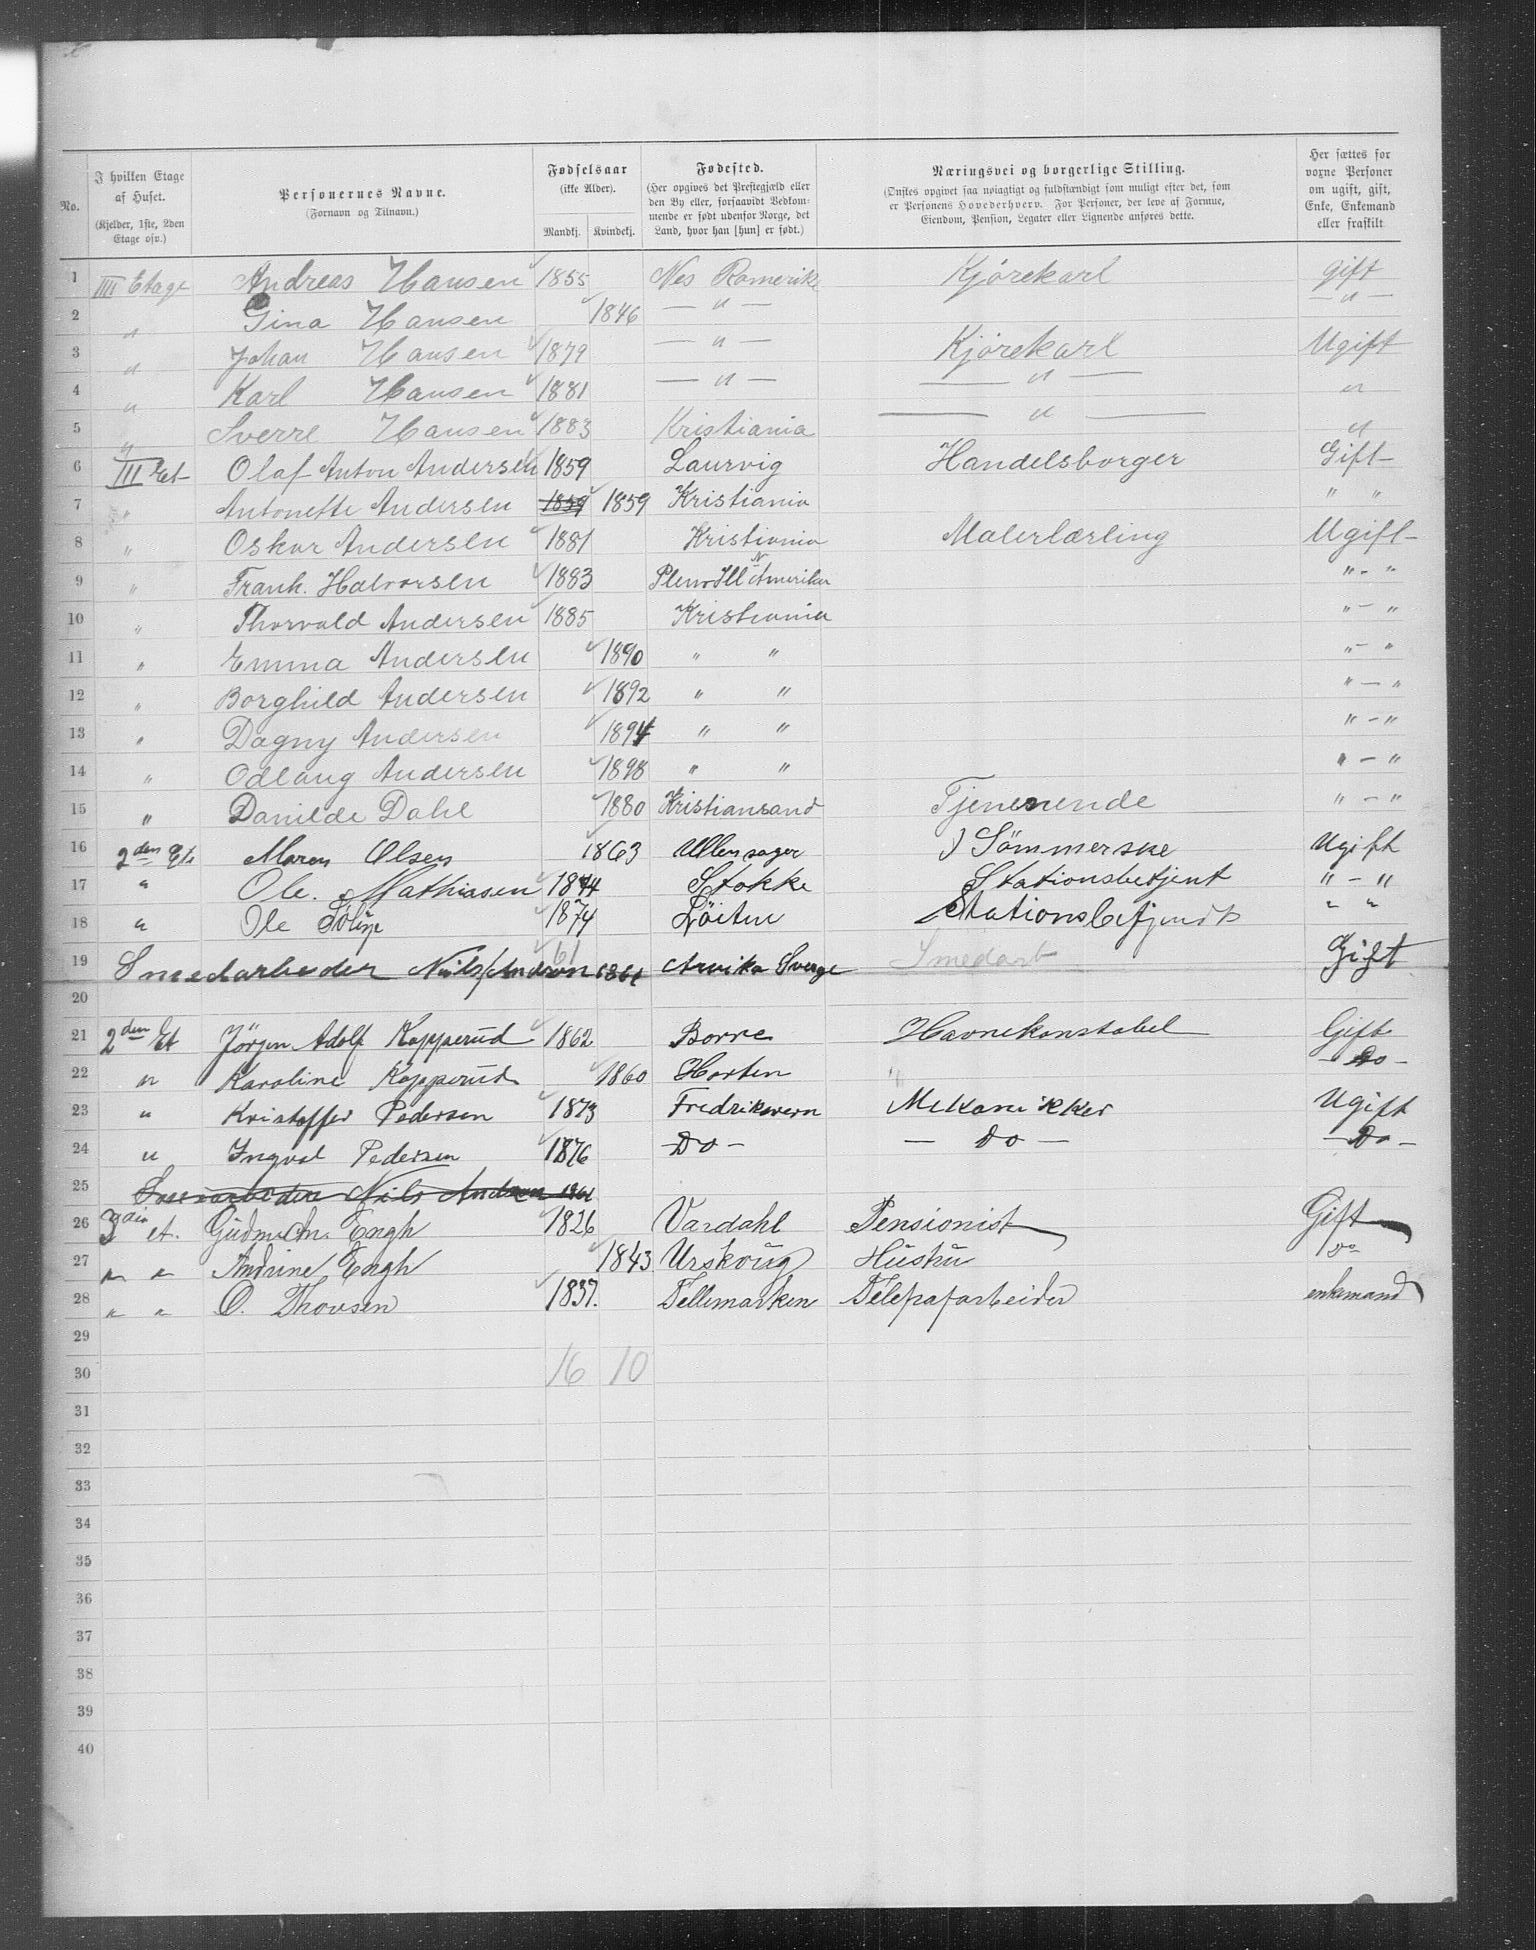 No.
I hvilken Etage af Huset. (Kjelder, 1ste, 2den Etage osv.)
Personernes Navne. (Fornavn og Tilnavn.)
Fødselsaar (ikke Alder). Mandkj. Kvindekj.
Fødested. (Her opgives det Prestegjæld eller den By eller, forsaavidt Vedkommende er født udenfor Norge, det Land, hvor han [hun] er født.)
Næringsvei og borgerlige Stilling. (Ønskes opgivet saa nøiagtigt og fuldstændigt som muligt efter det, som er Personens Hovederhverv. For Personer, der leve af Formue, Eiendom, Pension, Legater eller Lignende anføres dette.
Her sættes for vorne Personer om ugift, gift, Enke, Enkemand eller fraskilt
1 IIII Etage Andreas Hansen 1855 Nes Romerike Kjørekarl gift
2 " Gina Hansen 1846 — " — — " —
3 " Johan Hansen 1879 — " — Kjørekarl Ugift
4 " Karl Hansen 1881 — " — — " — "
5 " Sverre Hansen 1883 Kristiania — " — "
6 III Et Olaf Anton Andersen 1859 Laurvig Handelsborger Gift
7 " Antonette Andersen 1859 1859 Kristiania " "
8 " Oskar Andersen 1881 Kristiania Malerlærling Ugift
9 " Frank. Halvorsen 1883 Ill N Amerika " - "
10 " Thorvald Andersen 1885 Kristiania " - "
11 " Emma Andersen 1890 " " " - "
12 " Borghild Andersen 1892 " " " - "
13 " Dagny Andersen 1894 " " " - "
14 " Odlaug Andersen 1898 " " " - "
15 " Danilde Dahl 1880 Kristiansand Tjenenende " - "
16 2den Et. Maren Olsen 1863 Ullensager Sömmerske Ugift
17 " Ole. Mathiasen 1874 Stokke Stationsbetjent " - "
18 " Ole 1874 Löiten " "
19 Smedarbeider Nils Andson 61 1861 Arvika Sverge Smedarb Gift
20
21 2den Et Jörgen Adolf Kopperud 1862 Borre Havnekonstabel Gift
22 " Karoline Kopperud 1860 Horten " - Do -
23 " Kristoffer Pedersen 1873 Fredriksvern Mekanikker Ugift
24 " Ingval Pedersen 1876 - Do - — Do — - Do -
25 Smedarbeider Nils Andson 1861
26 3die et. Gudm. An. Engh 1826 Vardahl Pensionist Gift
27 " " Andrine Engh 1843 Urskoug Hustru Do
28 " " O. Thovsen 1837. Tellemarken enkemand
29
30 16 10
31
32
33
34
35
36
37
38
39
40